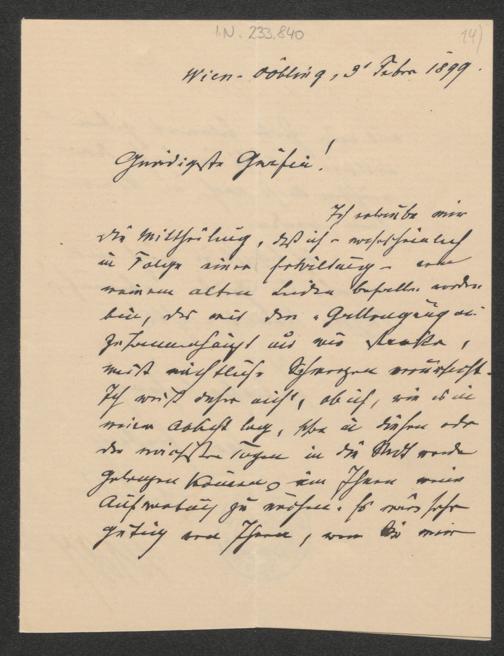 I.N. 233.840
14)
Wien-Döbling, 9t Febr 1899.
Gnädigste Gräfin!
Ich erlaube mir
die Mittheilung, daß ich – wahrscheinlich
in Folge einer Erkältung – von
meinem alten Leiden befallen worden
bin, das mit den „Gallengängen
zusammenhängt und mir starke,
meist nächtliche Schmerzen verursacht.
Ich weiß daher nicht, ob ich, wie es in
meiner Absicht lag, schon in diesen oder
den nächsten Tagen in die Stadt werde
gelangen können, um Ihnen meine
Aufwartung zu machen. Es wäre sehr
gütig von Ihnen, wenn Sie mir